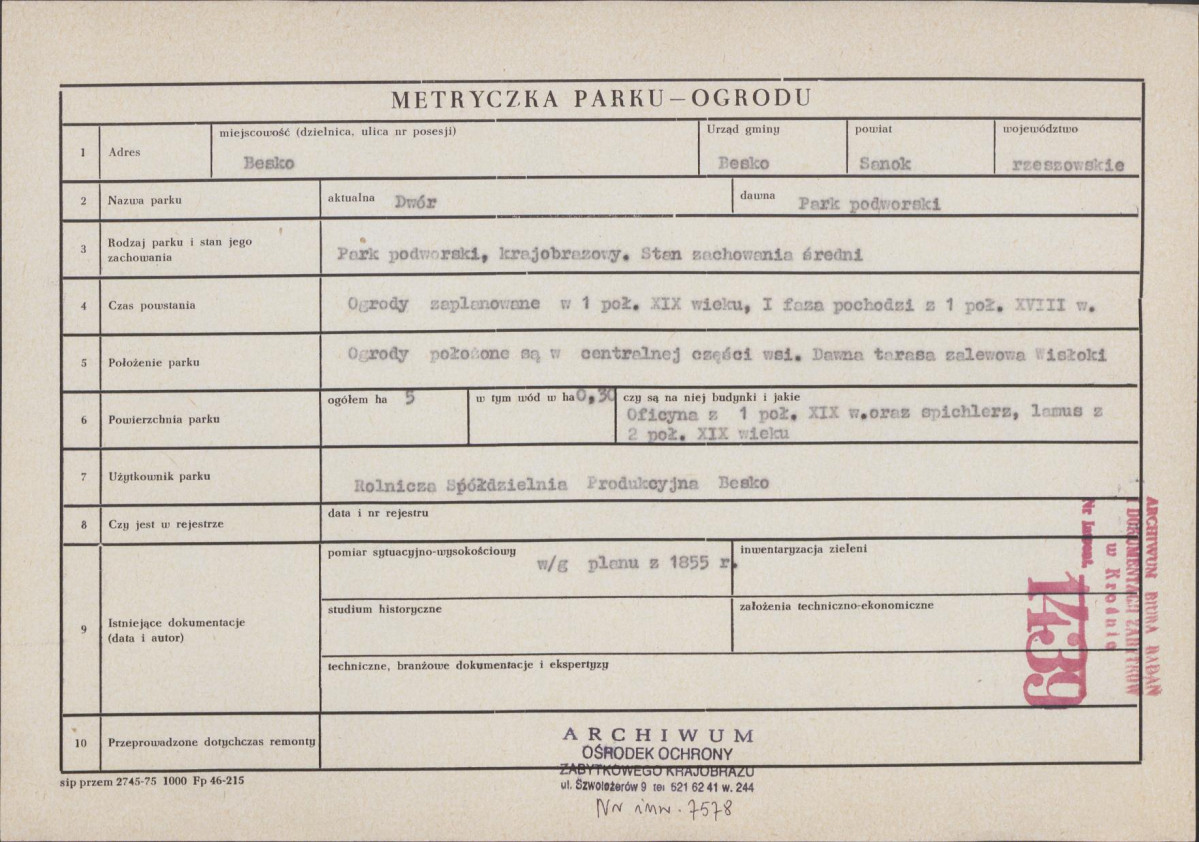 METRYCZKA PARKU – OGRODU
1 Adres
miejscowość (dzielnica, ulica nr posesji)
Besko
Urząd gminy
Besko
powiat
Sanok
województwo
rzeszowskie
2 Nazwa parku
aktualna Dwór
dawna Park podworski
3 Rodzaj parku i stan jego
zachowania
Park podworski, krajobrazowy. Stan zachowania średni
4 Czas powstania
Ogrody zaplanowane w 1 poł. XIX wieku, I faza pochodzi z 1 poł. XVIII w.
5 Położenie parku
Ogrody położone są w centralnej części wsi. Dawna tarasa zalewowa Wisłoki
6 Powierzchnia parku
ogółem ha 5
w tym wód w ha 0,30
czy są na niej budynki i jakie
Oficyna z 1 poł. XIX w.oraz spichlerz, lamus z
2 poł. XIX wieku
7 Użytkownik parku
Rolnicza Spółdzielnia Produkcyjna Besko
8 Czy jest w rejestrze
data i nr rejestru
9 Istniejące dokumentacje
(data i autor)
pomiar sytuacyjno-wysokościowy
w/g planu z 1855 r.
inwentaryzacja zieleni
studium historyczne
założenia techniczno-ekonomiczne
techniczne, branżowe dokumentacje i ekspertyzy
10 Przeprowadzone dotychczas remonty
ARCHIWUM BIURA BADAŃ
I DOKUMENTACJI ZABYTKÓW
w Krośnie
Nr Inwent.
1439
ARCHIWUM
OŚRODEK OCHRONY
ZABYTKOWEGO KRAJOBRAZU
ul. Szwoleżerów 9 tel 621 62 41 w. 244
Nr inw. 7578
sip przem 2745-75 1000 Fp 46-215